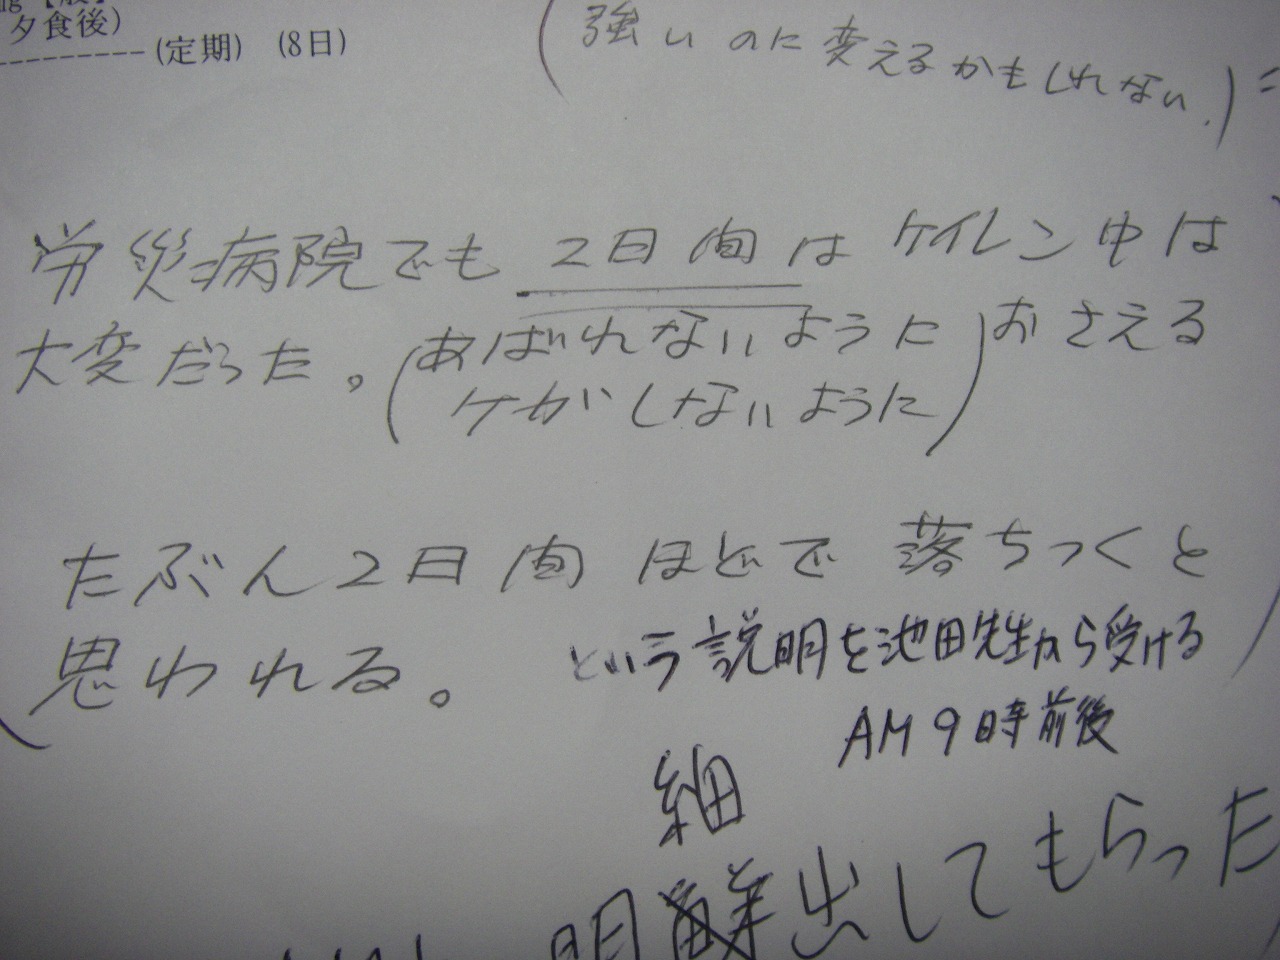 夕食後)
(定期) (8日)
(強いのに変えるかもしれない.)
労災病院でも2日間はケイレン中は
大変だった。(あばれないように
ケガしないように)おさえる
たぶん2日間ほどで落ちつくと
思われる。
という説明を池田先生から受ける
AM9時前後
細
明 出してもらった